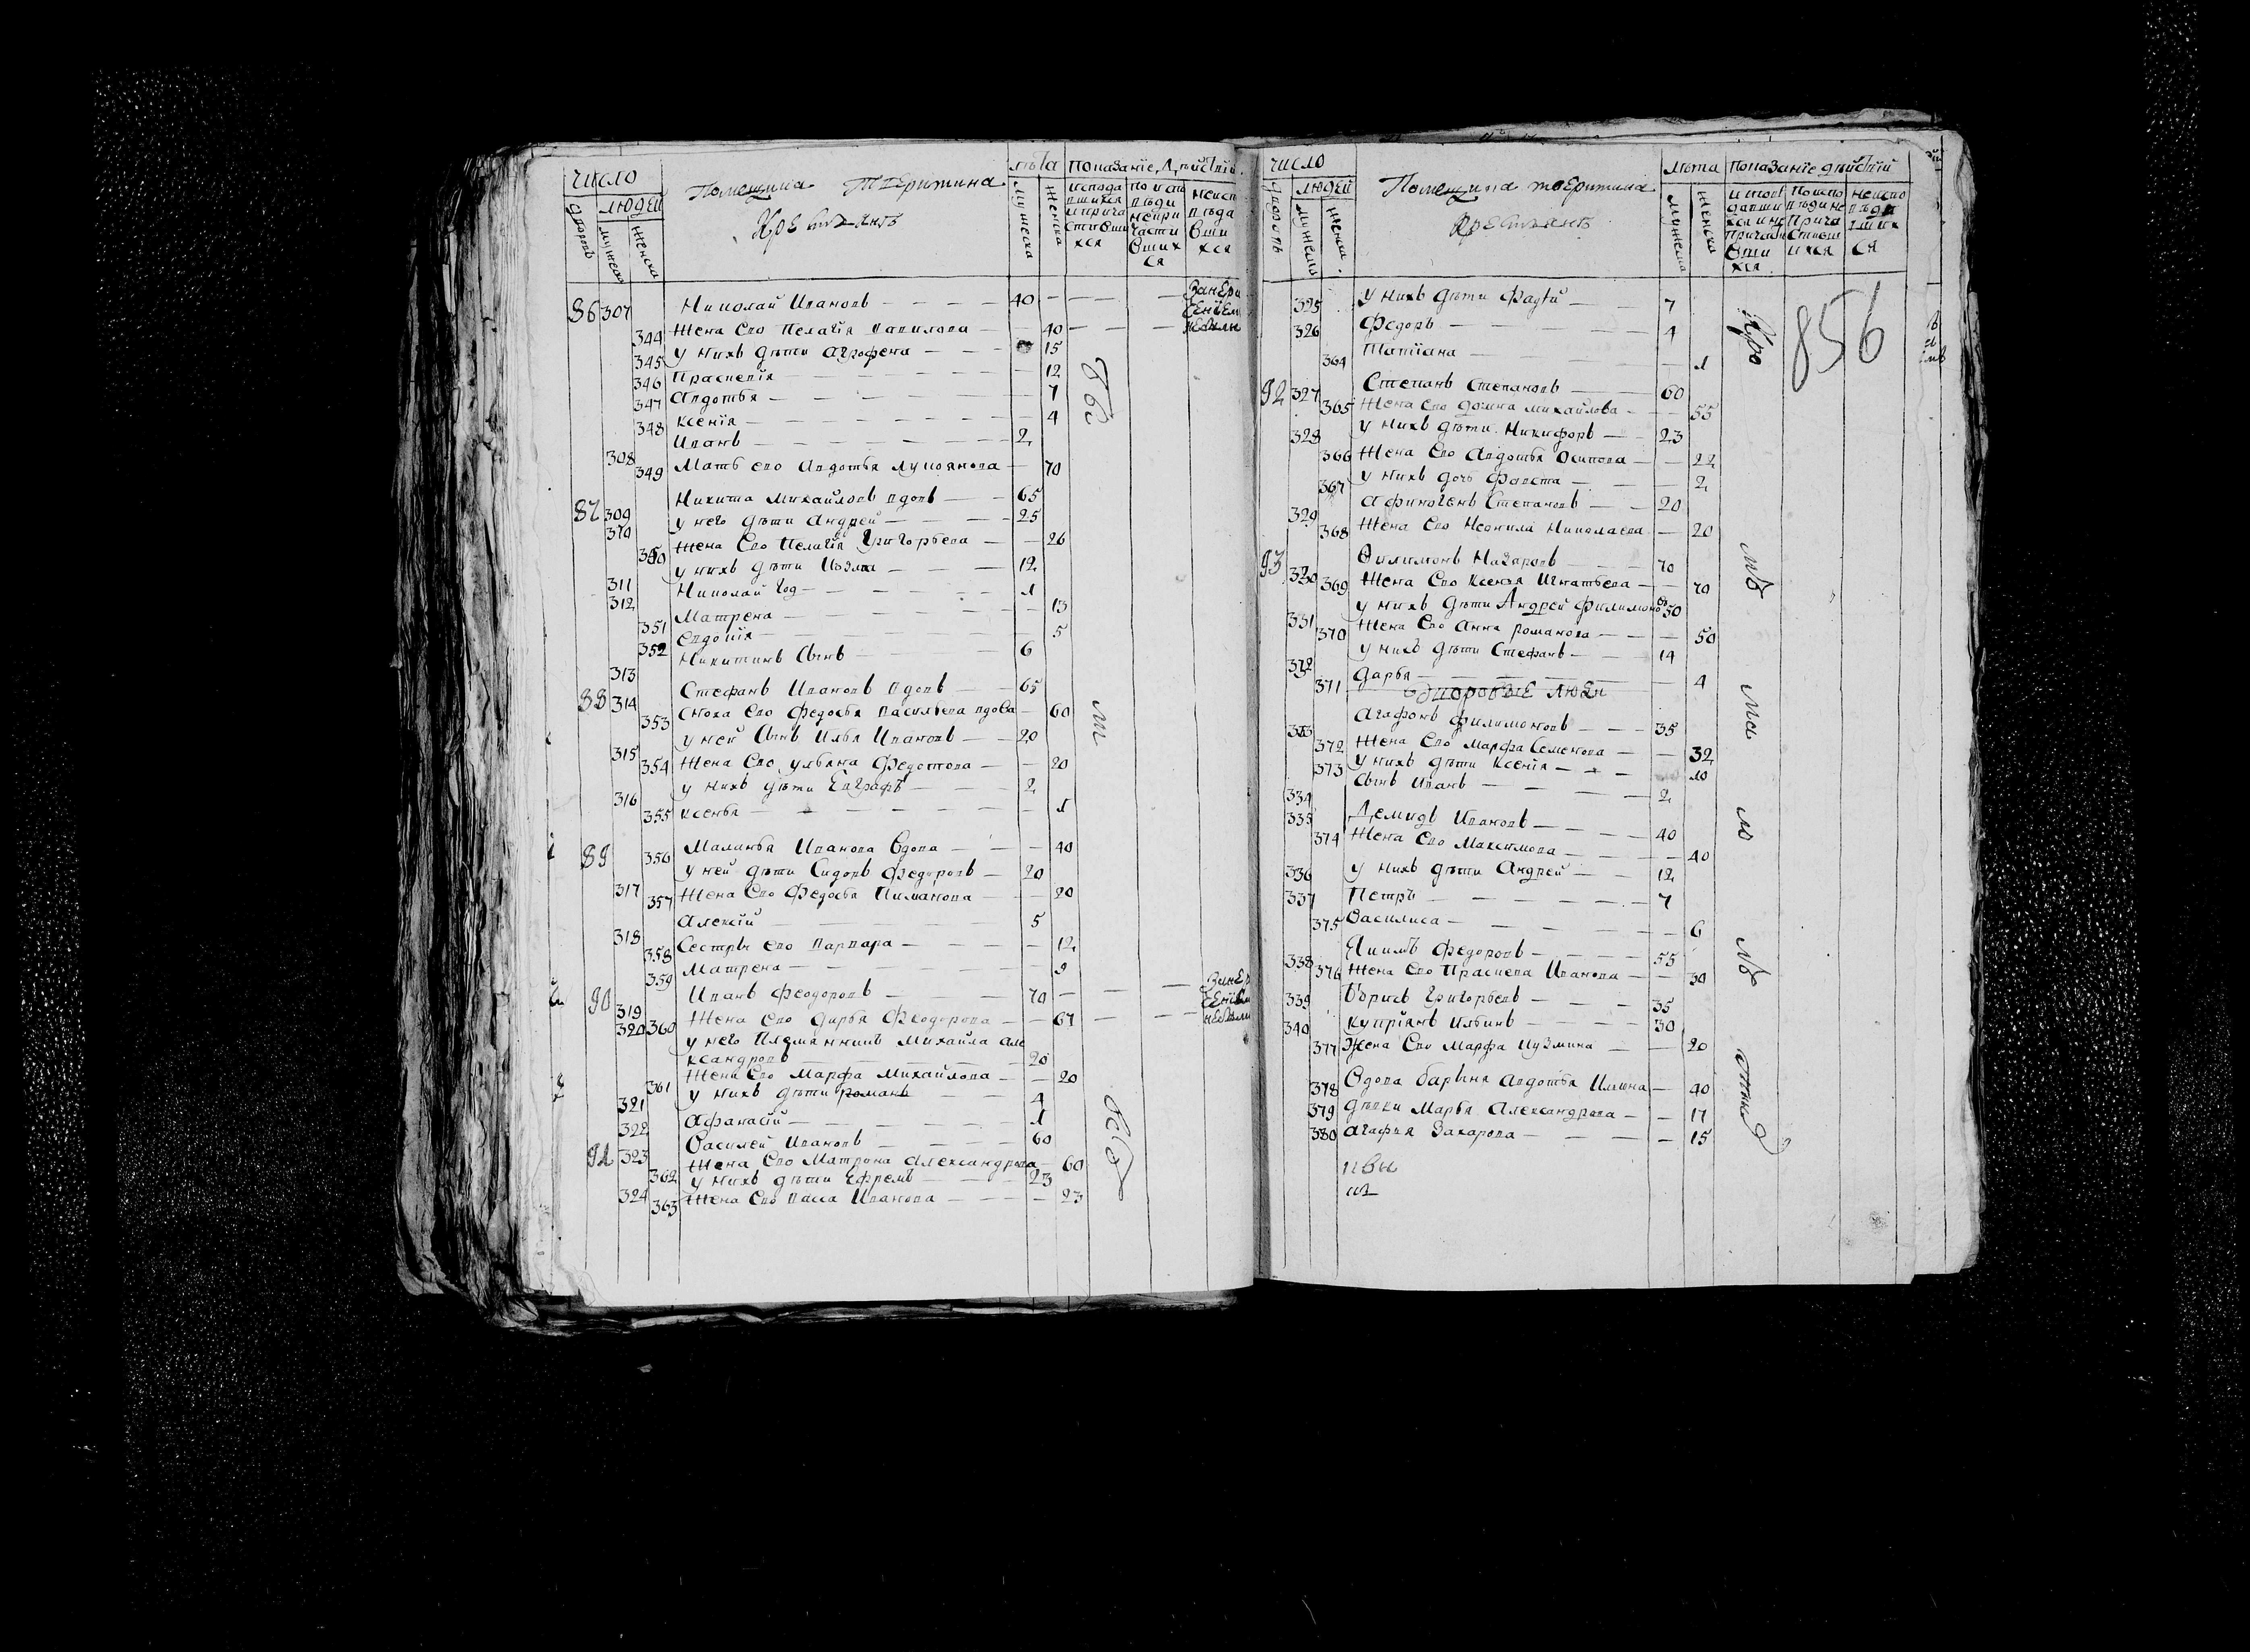 число
людей
дворовъ
мужеска
женска
Помещика Тверитина
Крестьянъ
лѣта
мужеска
женска
показаніе дѣйствій
исповѣдавшихся и причастившихся
по исповѣди непричастившихся
неисповѣдавшихся
86 307 Николай Ивановъ 40
344 Жена Ево Пелагія Данилова 40
345 у нихъ дѣти Агрофена 15
346 Прасковія 12
347 Авдотья 7
348 Ксенія 4
308 Иванъ 2
349 Мать ево Авдотья Лукоянова 70
87 309 Никита Михайловъ вдовъ 65
310 у него дѣти Андрей 25
350 Жена Ево Пелагія Григорьева 26
311 у нихъ дѣти 12
312 Николай год 1
351 Матрена 13
352 Евдокія 5
313 Никитинъ Сынъ 6
88 314 Стефанъ Ивановъ вдовъ 65
353 Сноха Ево Федосья Васильева вдова 60
315 у ней Сынъ Илья Ивановъ 20
354 Жена Ево Ульяна Федотова 20
316 у нихъ дѣти Евграфъ 2
355 Ксенья 1
89 356 Маланья Иванова Вдова 40
317 у ней дѣти Сидоръ Федоровъ 20
357 Жена Ево Федосья 20
318 Алексій 5
358 Сестры ево Варвара 12
359 Матрена 9
90 319 Иванъ Феодоровъ 70
360 Жена Ево Дарья Феодорова 67
320 у него Племянникъ Михайла Але
ксандровъ 20
361 Жена Ево Марфа Михайлова 20
321 у нихъ дѣти Романъ 4
322 Афанасій 1
91 323 Василей Ивановъ 60
362 Жена Ево Матрона Александрова 60
324 у нихъ дѣти Ефремъ 23
363 Жена Ево Васса Иванова 23
число
людей
мужеска
женска
Помещика Тверитина
Крестьянъ
лѣта
мужеска
женска
показаніе дѣйствій
856
325 у нихъ дѣти Фадѣй 7
326 Федоръ 4
364 Татіана 1
92 327 Степанъ Степановъ 60
365 Жена Ево Домна Михайлова 55
328 у нихъ дѣти Никифоръ 23
366 Жена Ево Авдотья Осипова 22
367 у нихъ дочь Фавста 2
329 Афиногенъ Степановъ 20
368 Жена Ево Неонила Николаева 20
93 330 Филимонъ Назаровъ 70
369 Жена Ево Ксенія Игнатьева 70
331 у нихъ дѣти Андрей Филимоновъ 50
370 Жена Ево Анна Романова 50
332 у нихъ дѣти Стефанъ 14
371 Дарья 4
Дворовые люди
333 Агафонъ Филимоновъ 35
372 Жена Ево Марфа Семенова 32
373 у нихъ дѣти Ксенія 10
334 Сынъ Иванъ 2
335 Демидъ Ивановъ 40
374 Жена Ево Максимова 40
336 у нихъ дѣти Андрей 12
337 Петръ 7
375 Василиса 6
338 Якимъ Федоровъ 55
376 Жена Ево Праскева Иванова 30
339 Борисъ Григорьевъ 35
340 Купріянъ Ильинъ 30
377 Жена Ево Марфа Кузмина 20
378 Вдова барыня Авдотья Ильина 40
379 Дѣвки Марья Александрова 17
380 Агафья Захарова 15